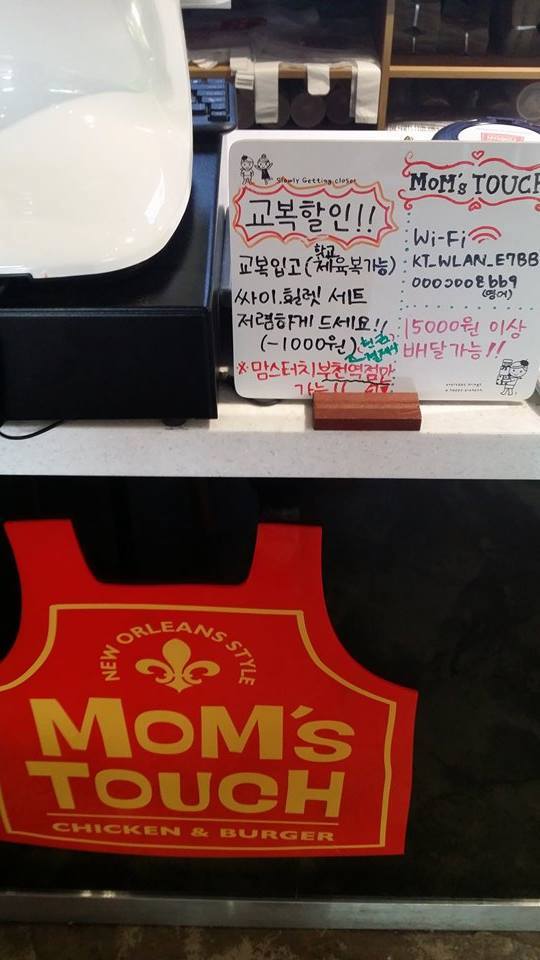 Slowly Getting closer
교복할인!!
교복입고 (학교 체육복가능)
싸이.휠렛 세트
저렴하게 드세요!!
(-1000원)
※맘스터치부천역점만
가능!!
MOM's TOUCH
Wi-Fi
KT_WLAN_E7BB
(영어)
15000원 이상
배달가능!!
NEW ORLEANS STYLE
MOM'S
TOUCH
CHICKEN & BURGER